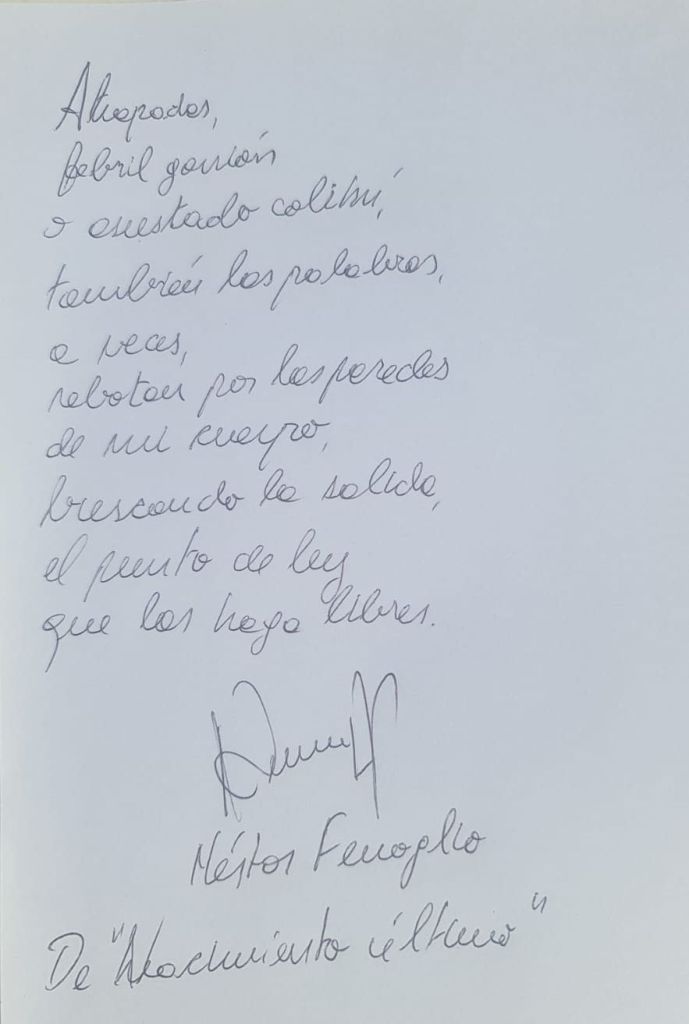 Atrapados,
febril gorrión
o asustado colibrí,
también las palabras,
a veces,
rebotan por las paredes
de mi cuerpo,
buscando la salida,
el punto de luz
que las haga libres.
Néstor Fenoglio
De "Nacimiento último"